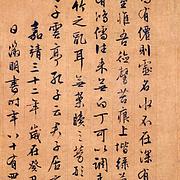 高有僊則名水不在深有
室惟吾德馨苔痕上堦綠草
有鴻儒往來無白丁可以調素
竹之亂耳無案牘之勞形
子雲亭孔子云君子居
嘉靖三十二年歲在癸
日徵明書時年八十有四